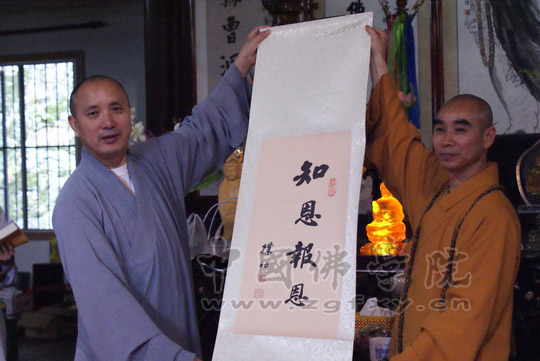 知恩報恩
樸初
中國佛学院
www.zgfxy.cn